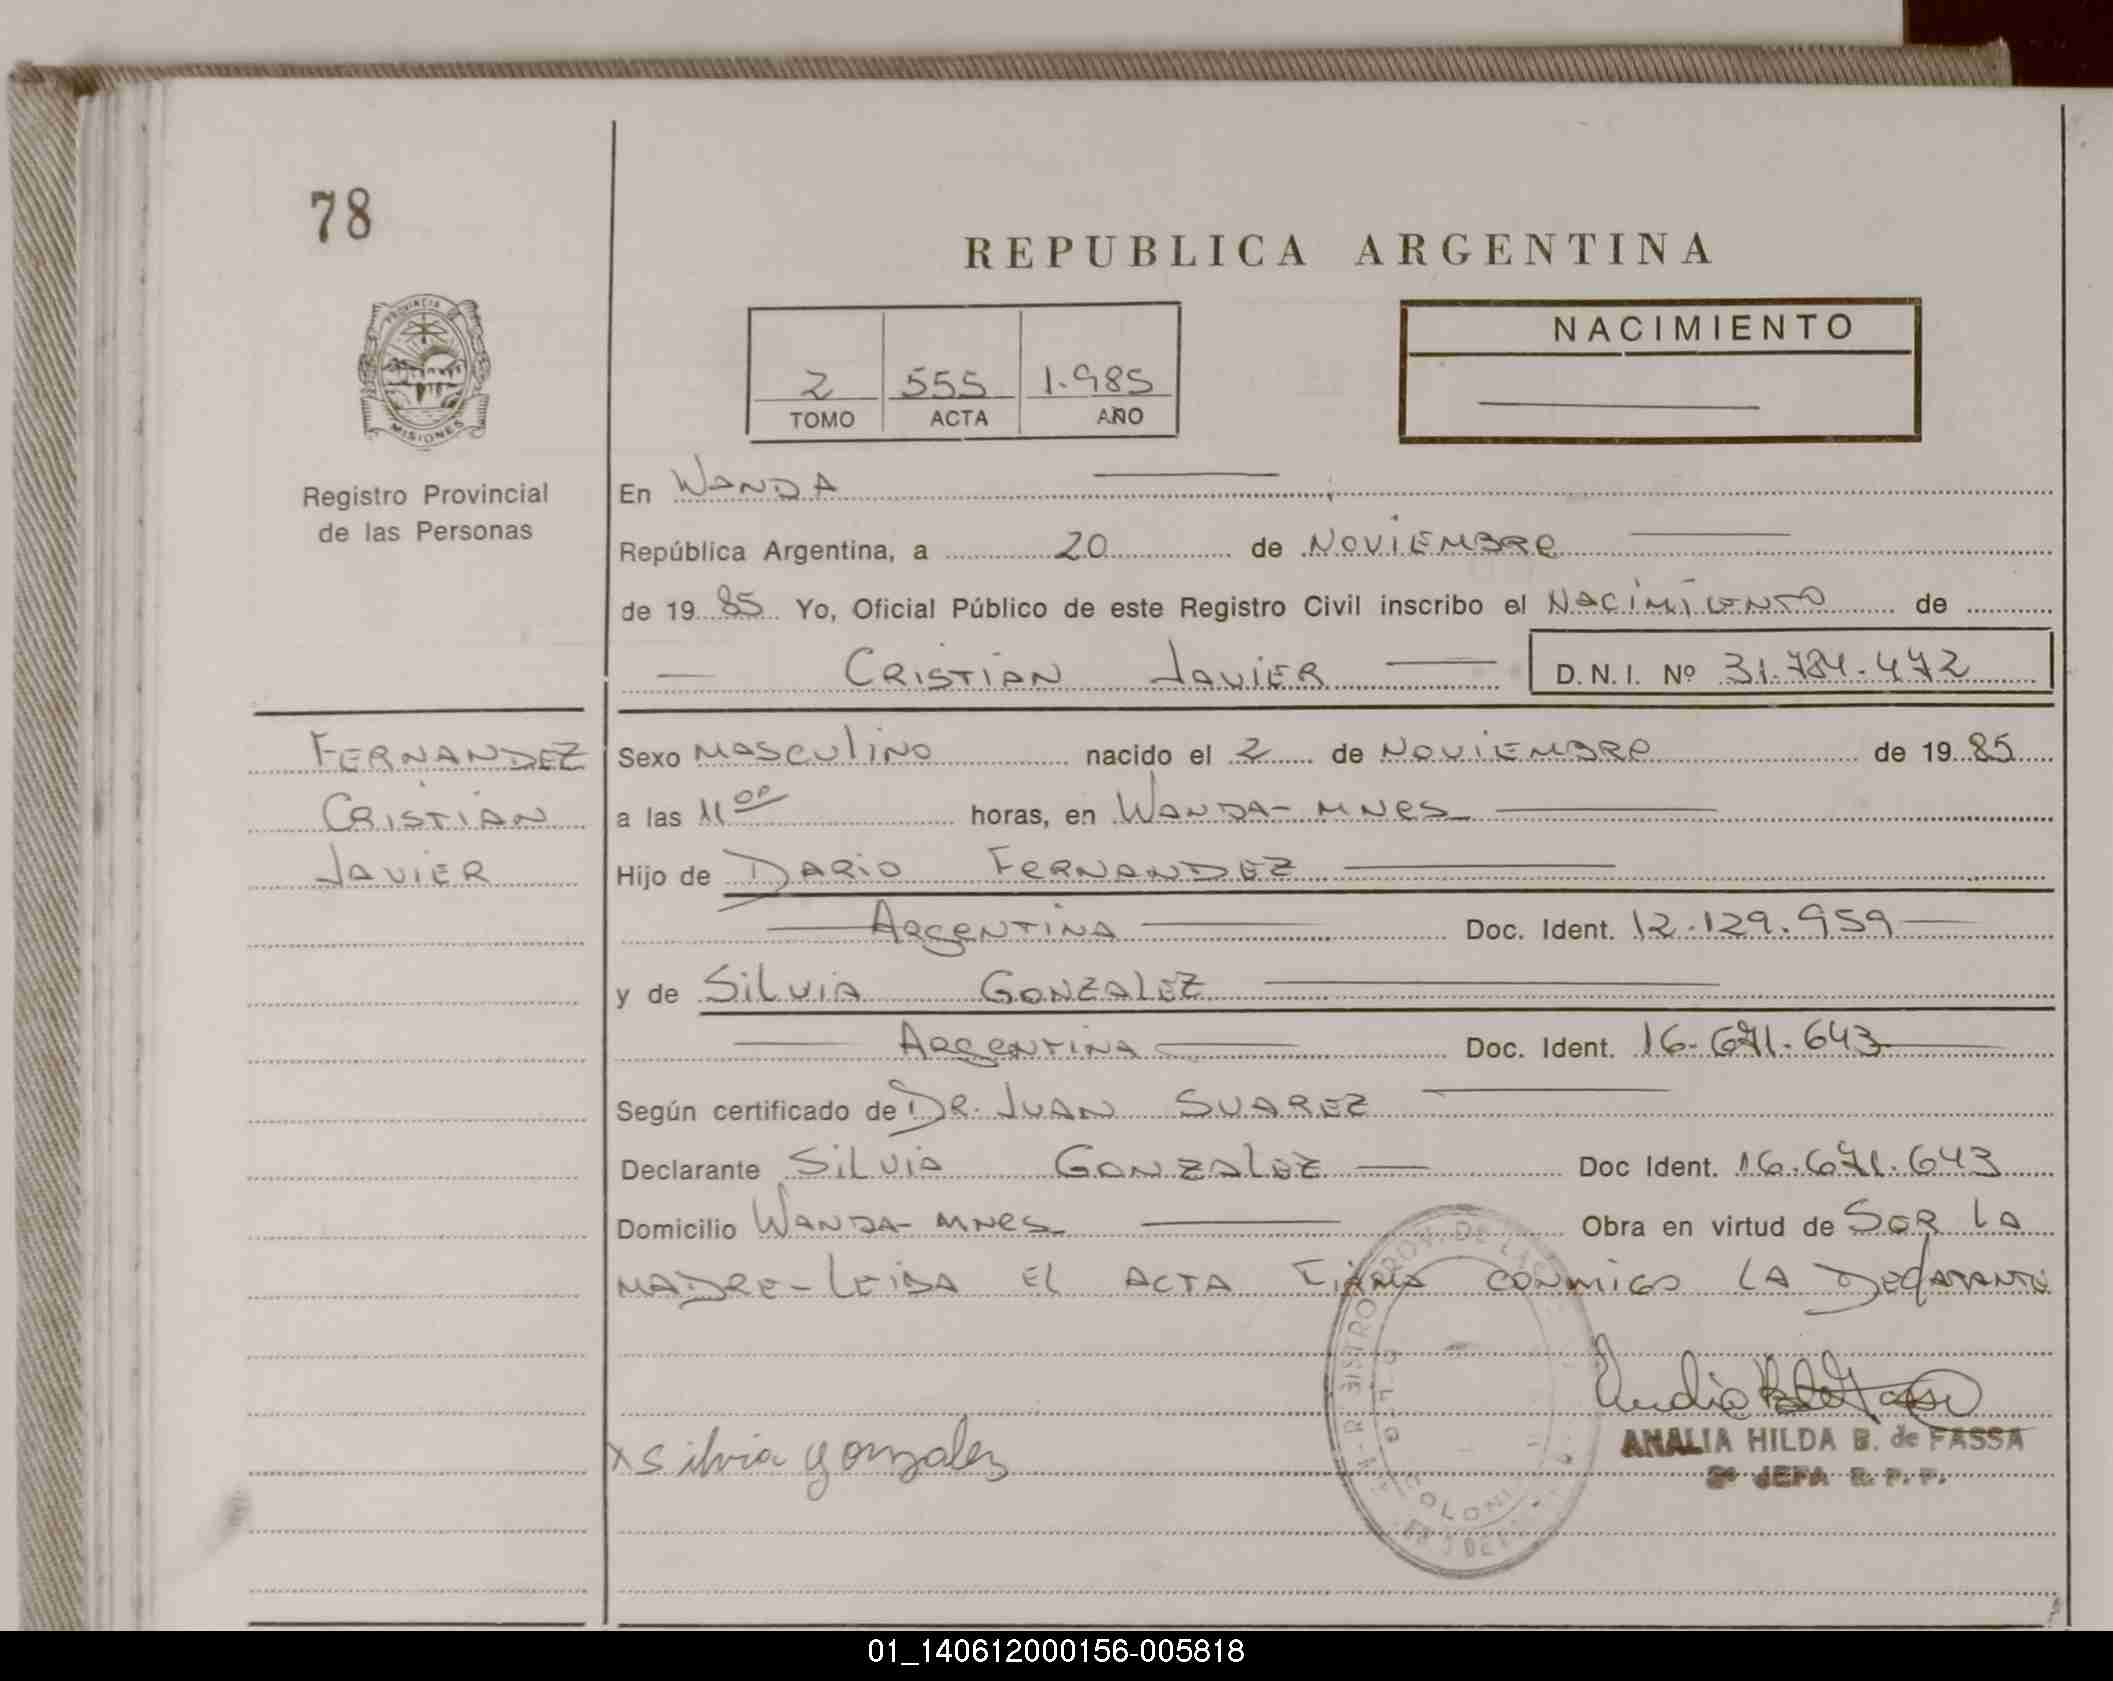 78
REPUBLICA ARGENTINA
PROVINCIA
MISIONES
Registro Provincial
de las Personas
NACIMIENTO
2 555 1.985
TOMO ACTA AÑO
En WANDA
República Argentina, a 20 de NOVIEMBRE
de 19 85 Yo, Oficial Público de este Registro Civil inscribo el NACIMIENTO de
CRISTIAN JAVIER D.N.I. Nº 31.784.472
FERNANDEZ
CRISTIAN
JAVIER
Sexo MASCULINO nacido el 2 de NOVIEMBRE de 19 85
a las 11 00 horas, en WANDA - MNES
Hijo de DARIO FERNANDEZ
ARGENTINA Doc. Ident. 12.129.959
y de SILVIA GONZALEZ
ARGENTINA Doc. Ident. 16.671.643
Según certificado de DR. JUAN SUAREZ
Declarante SILVIA GONZALEZ Doc Ident. 16.671.643
Domicilio WANDA - MNES Obra en virtud de SER LA
MADRE - LEIDA EL ACTA FIRMA CONMIGO LA
x Silvia gonzalez
ANALIA HILDA B. de FASSA
JEFA R. P. P.
01_140612000156-005818